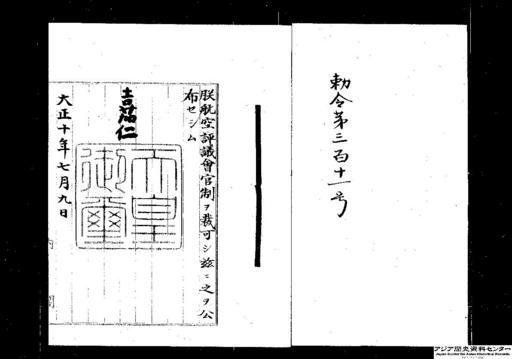 勅令第三百十一号
朕航空評議會官制ヲ裁可シ茲ニ之ヲ公
布セシム
嘉仁
天皇
御璽
大正十年七月九日
内閣
アジア歴史資料センター
Japan Center for Asian Historical Records